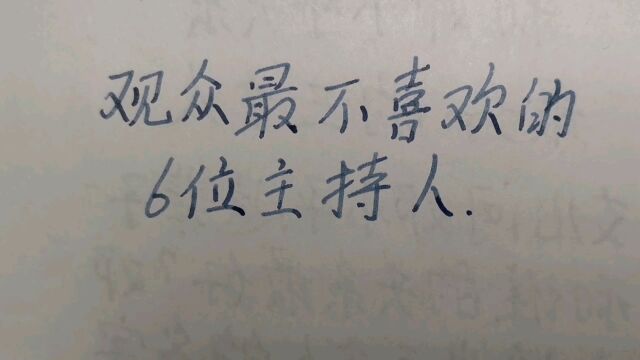 观众最不喜欢的
6位主持人.